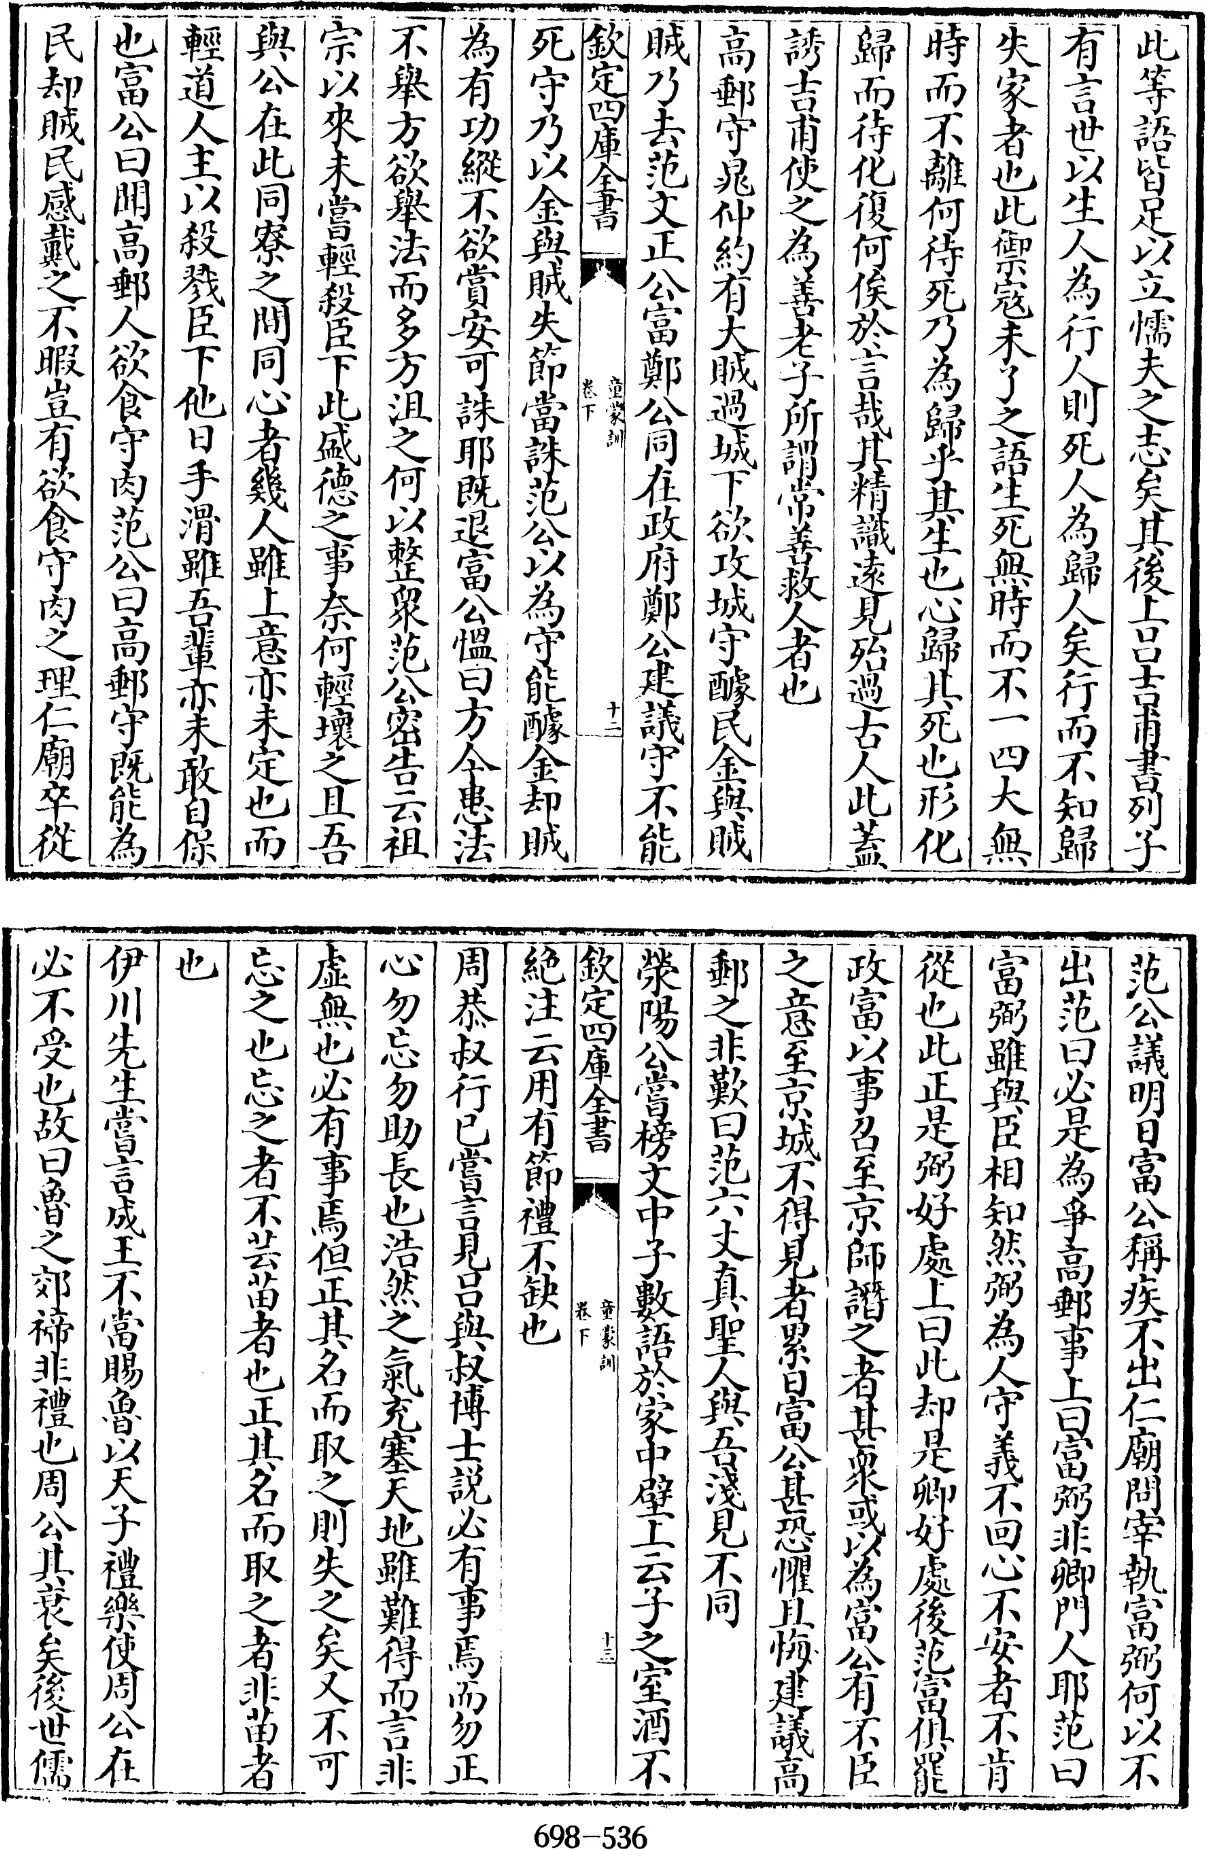 此等語皆足以立懦夫之志矣其後上吕吉甫書列子
有言世以生人為行人則死人為歸人矣行而不知歸
失家者也此禦寇未了之語生死無時而不一四大無
時而不離何待死乃為歸乎其生也心歸其死也形化
歸而待化復何俟於言哉其精識遠見殆過古人此蓋
誘吉甫使之為善老子所謂常善救人者也
高郵守晁仲約有大賊過城下欲攻城守醵民金與賊
賊乃去范文正公富鄭公同在政府鄭公建議守不能
欽定四庫全書
童蒙訓
卷下
十二
死守乃以金與賊失節當誅范公以為守能醵金却賊
為有功縱不欲賞安可誅耶既退富公愠曰方今患法
不舉方欲舉法而多方沮之何以整衆范公密告云祖
宗以來未嘗輕殺臣下此盛德之事奈何輕壞之且吾
與公在此同寮之間同心者幾人雖上意亦未定也而
輕道人主以殺戮臣下他日手滑雖吾輩亦未敢自保
也富公曰聞高郵人欲食守肉范公曰高郵守既能為
民却賊民感戴之不暇豈有欲食守肉之理仁廟卒從
范公議明日富公稱疾不出仁廟問宰執富弼何以不
出范曰必是為爭高郵事上曰富弼非卿門人耶范曰
富弼雖與臣相知然弼為人守義不回心不安者不肯
從也此正是弼好處上曰此却是卿好處後范富俱罷
政富以事召至京師譖之者甚衆或以為富公有不臣
之意至京城不得見者累日富公甚恐懼且悔建議高
郵之非歎曰范六丈真聖人與吾淺見不同
滎陽公嘗榜文中子數語於家中壁上云子之室酒不
欽定四庫全書
童蒙訓
卷下
十三
絶注云用有節禮不缺也
周恭叔行已嘗言見吕與叔博士説必有事焉而勿正
心勿忘勿助長也浩然之氣充塞天地雖難得而言非
虚無也必有事焉但正其名而取之則失之矣又不可
忘之也忘之者不芸苗者也正其名而取之者非苗者
也
伊川先生嘗言成王不當賜魯以天子禮樂使周公在
必不受也故曰魯之郊禘非禮也周公其衰矣後世儒
698-536